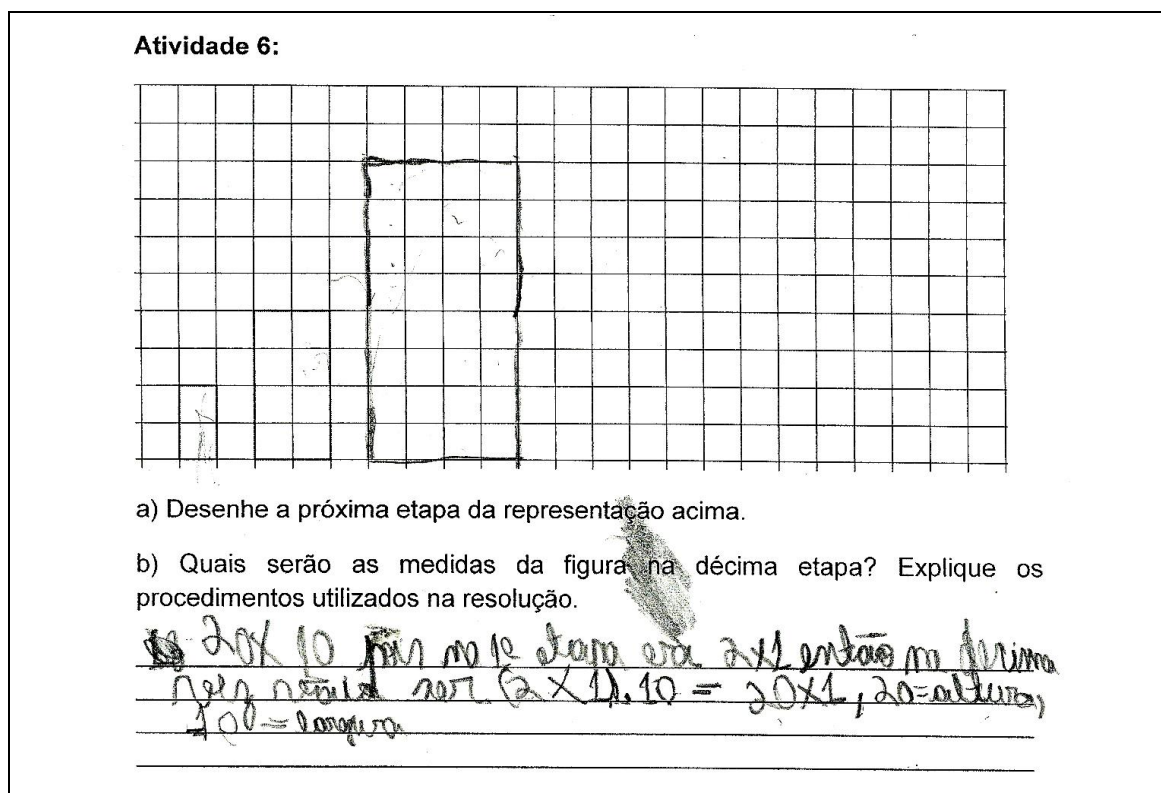 Atividade 6:
a) Desenhe a próxima etapa da representação acima.
b) Quais serão as medidas da figura na décima etapa? Explique os
procedimentos utilizados na resolução.
20X 10 pois no 1º etapa era 2x1 então na décima
ser (2 X 1). 10 = 20X1, 20=altura,
10 = largura